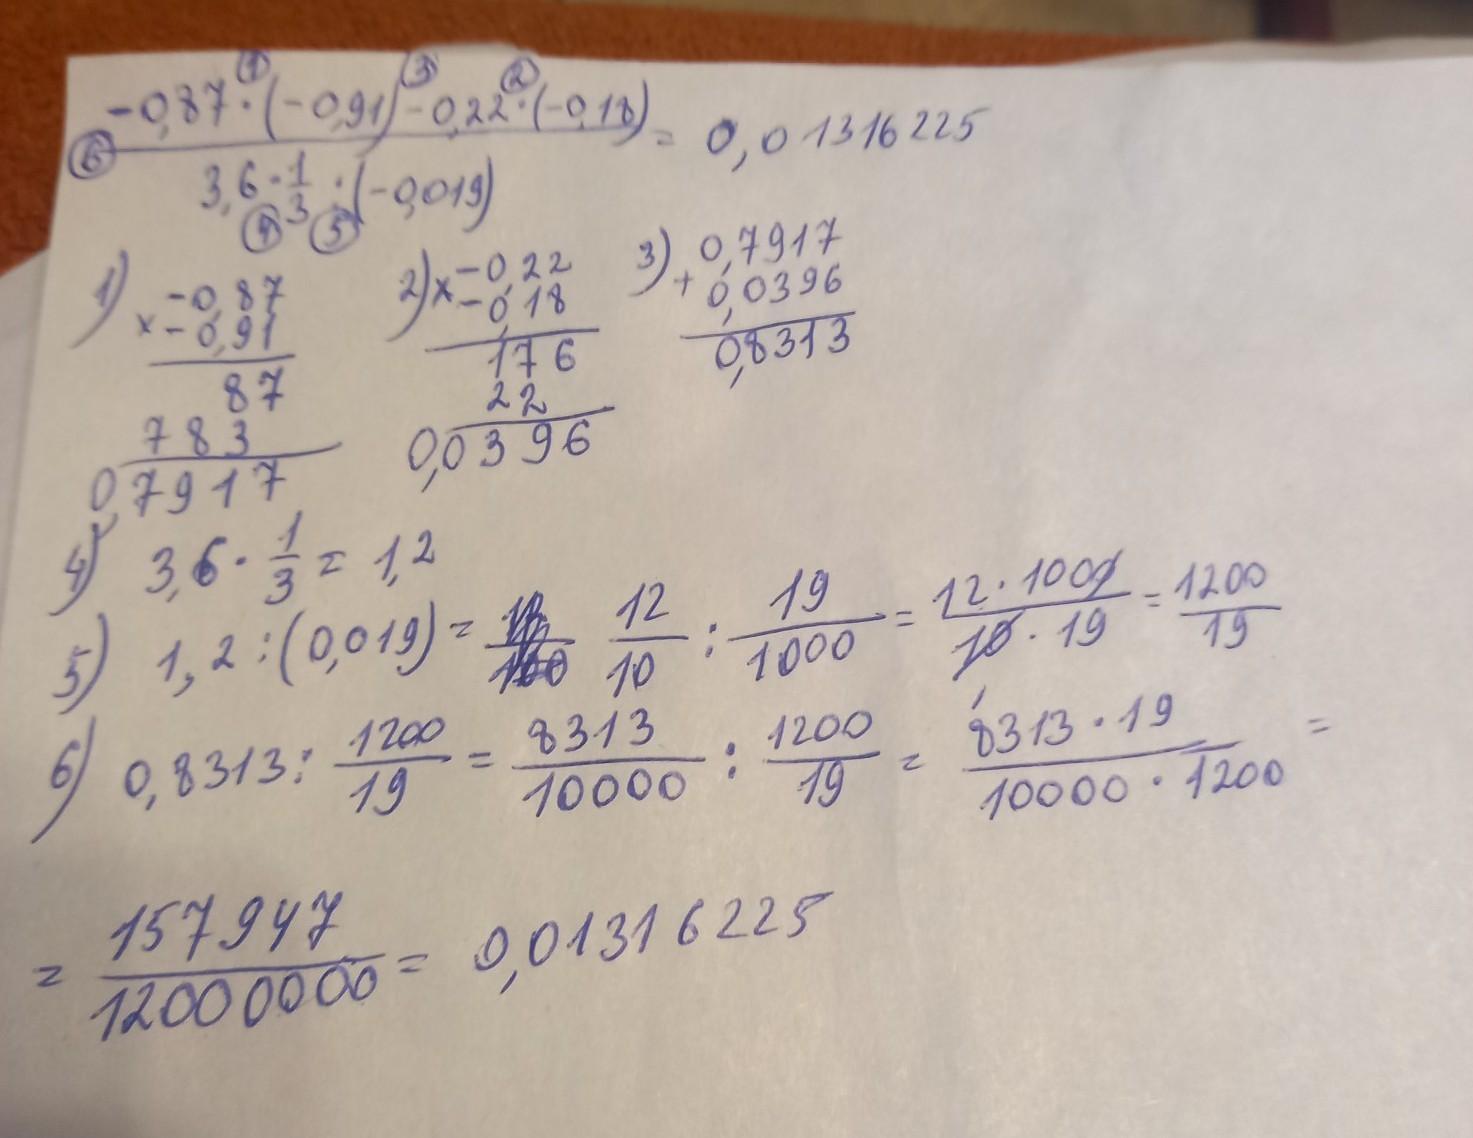 -0,87 · (-0,91) - 0,22 · (-0,18) = 0,01316225
3,6 · 1/3 : (-0,019)
1) × -0,87
-0,91
87
783
0,7917
2) × -0,22
-0,18
176
22
0,0396
3) 0,7917
+ 0,0396
0,8313
4) 3,6 · 1/3 = 1,2
5) 1,2 : (0,019) = 12/10 : 19/1000 = 12 · 1000/10 · 19 = 1200/19
6) 0,8313 : 1200/19 = 8313/10000 : 1200/19 = 8313 · 19/10000 · 1200 =
= 157947/12000000 = 0,01316225